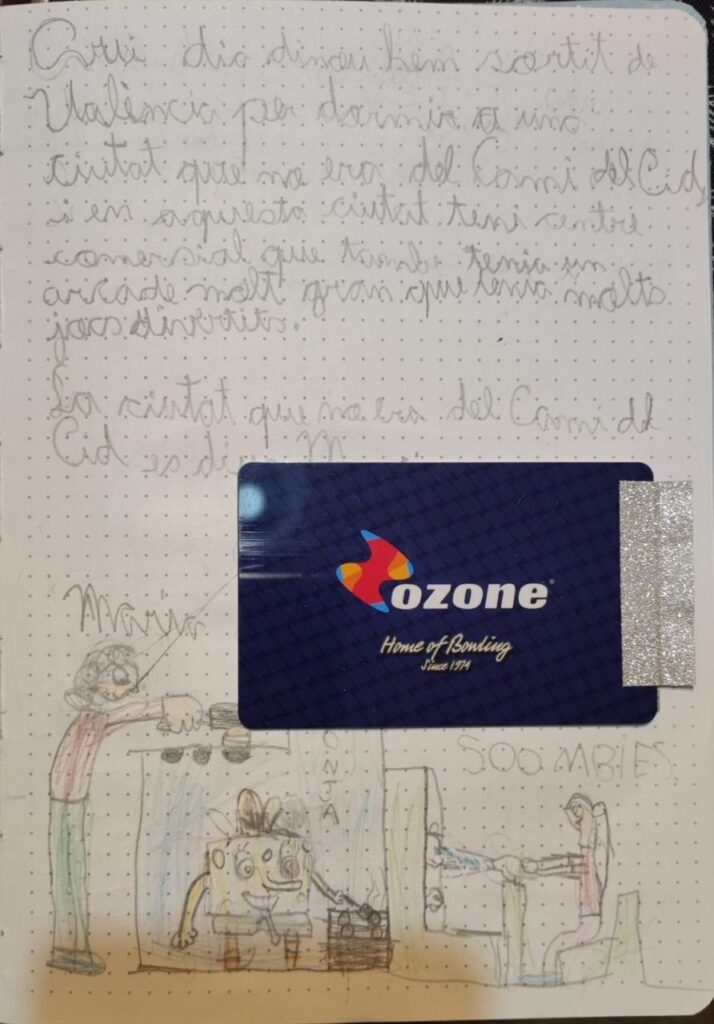 dia dinou hem sortit de
València per dormir a una
ciutat que no era del Camí del Cid,
i en aquesta ciutat centre
comersial que també tenia un
arcade molt gran que tenia molts
jocs divertits.
La ciutat que no era del Camí del
Cid es
ozone
Home of Bowling
Since 1974
SOOMBIES